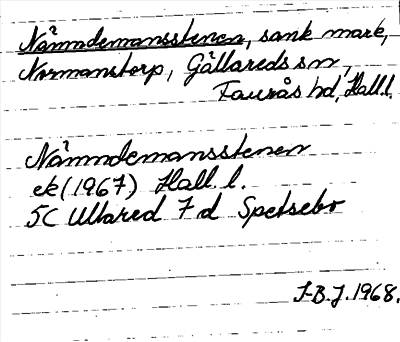 Nämndemansstenen, sank mark,
Normanstorp, Gällareds sn,
Faurås hd, Hall. l.
Nämndemansstenen
ek (1967) Hall. l.
5C Ullared 7 d Spetsebo
J-B.J. 1968.